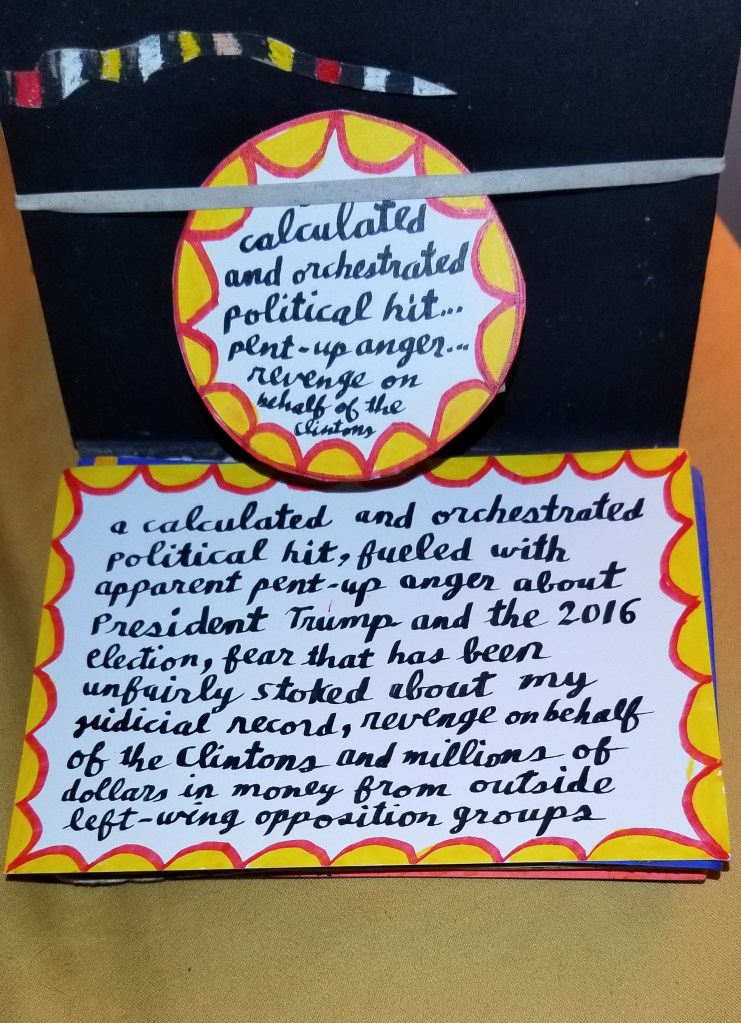 calculated
and orchestrated
political hit...
pent-up anger...
revenge on
behalf of the
Clintons
a calculated and orchestrated
political hit, fueled with
apparent pent-up anger about
President Trump and the 2016
election, fear that has been
unfairly stoked about my
judicial record, revenge on behalf
of the Clintons and millions of
dollars in money from outside
left-wing opposition groups